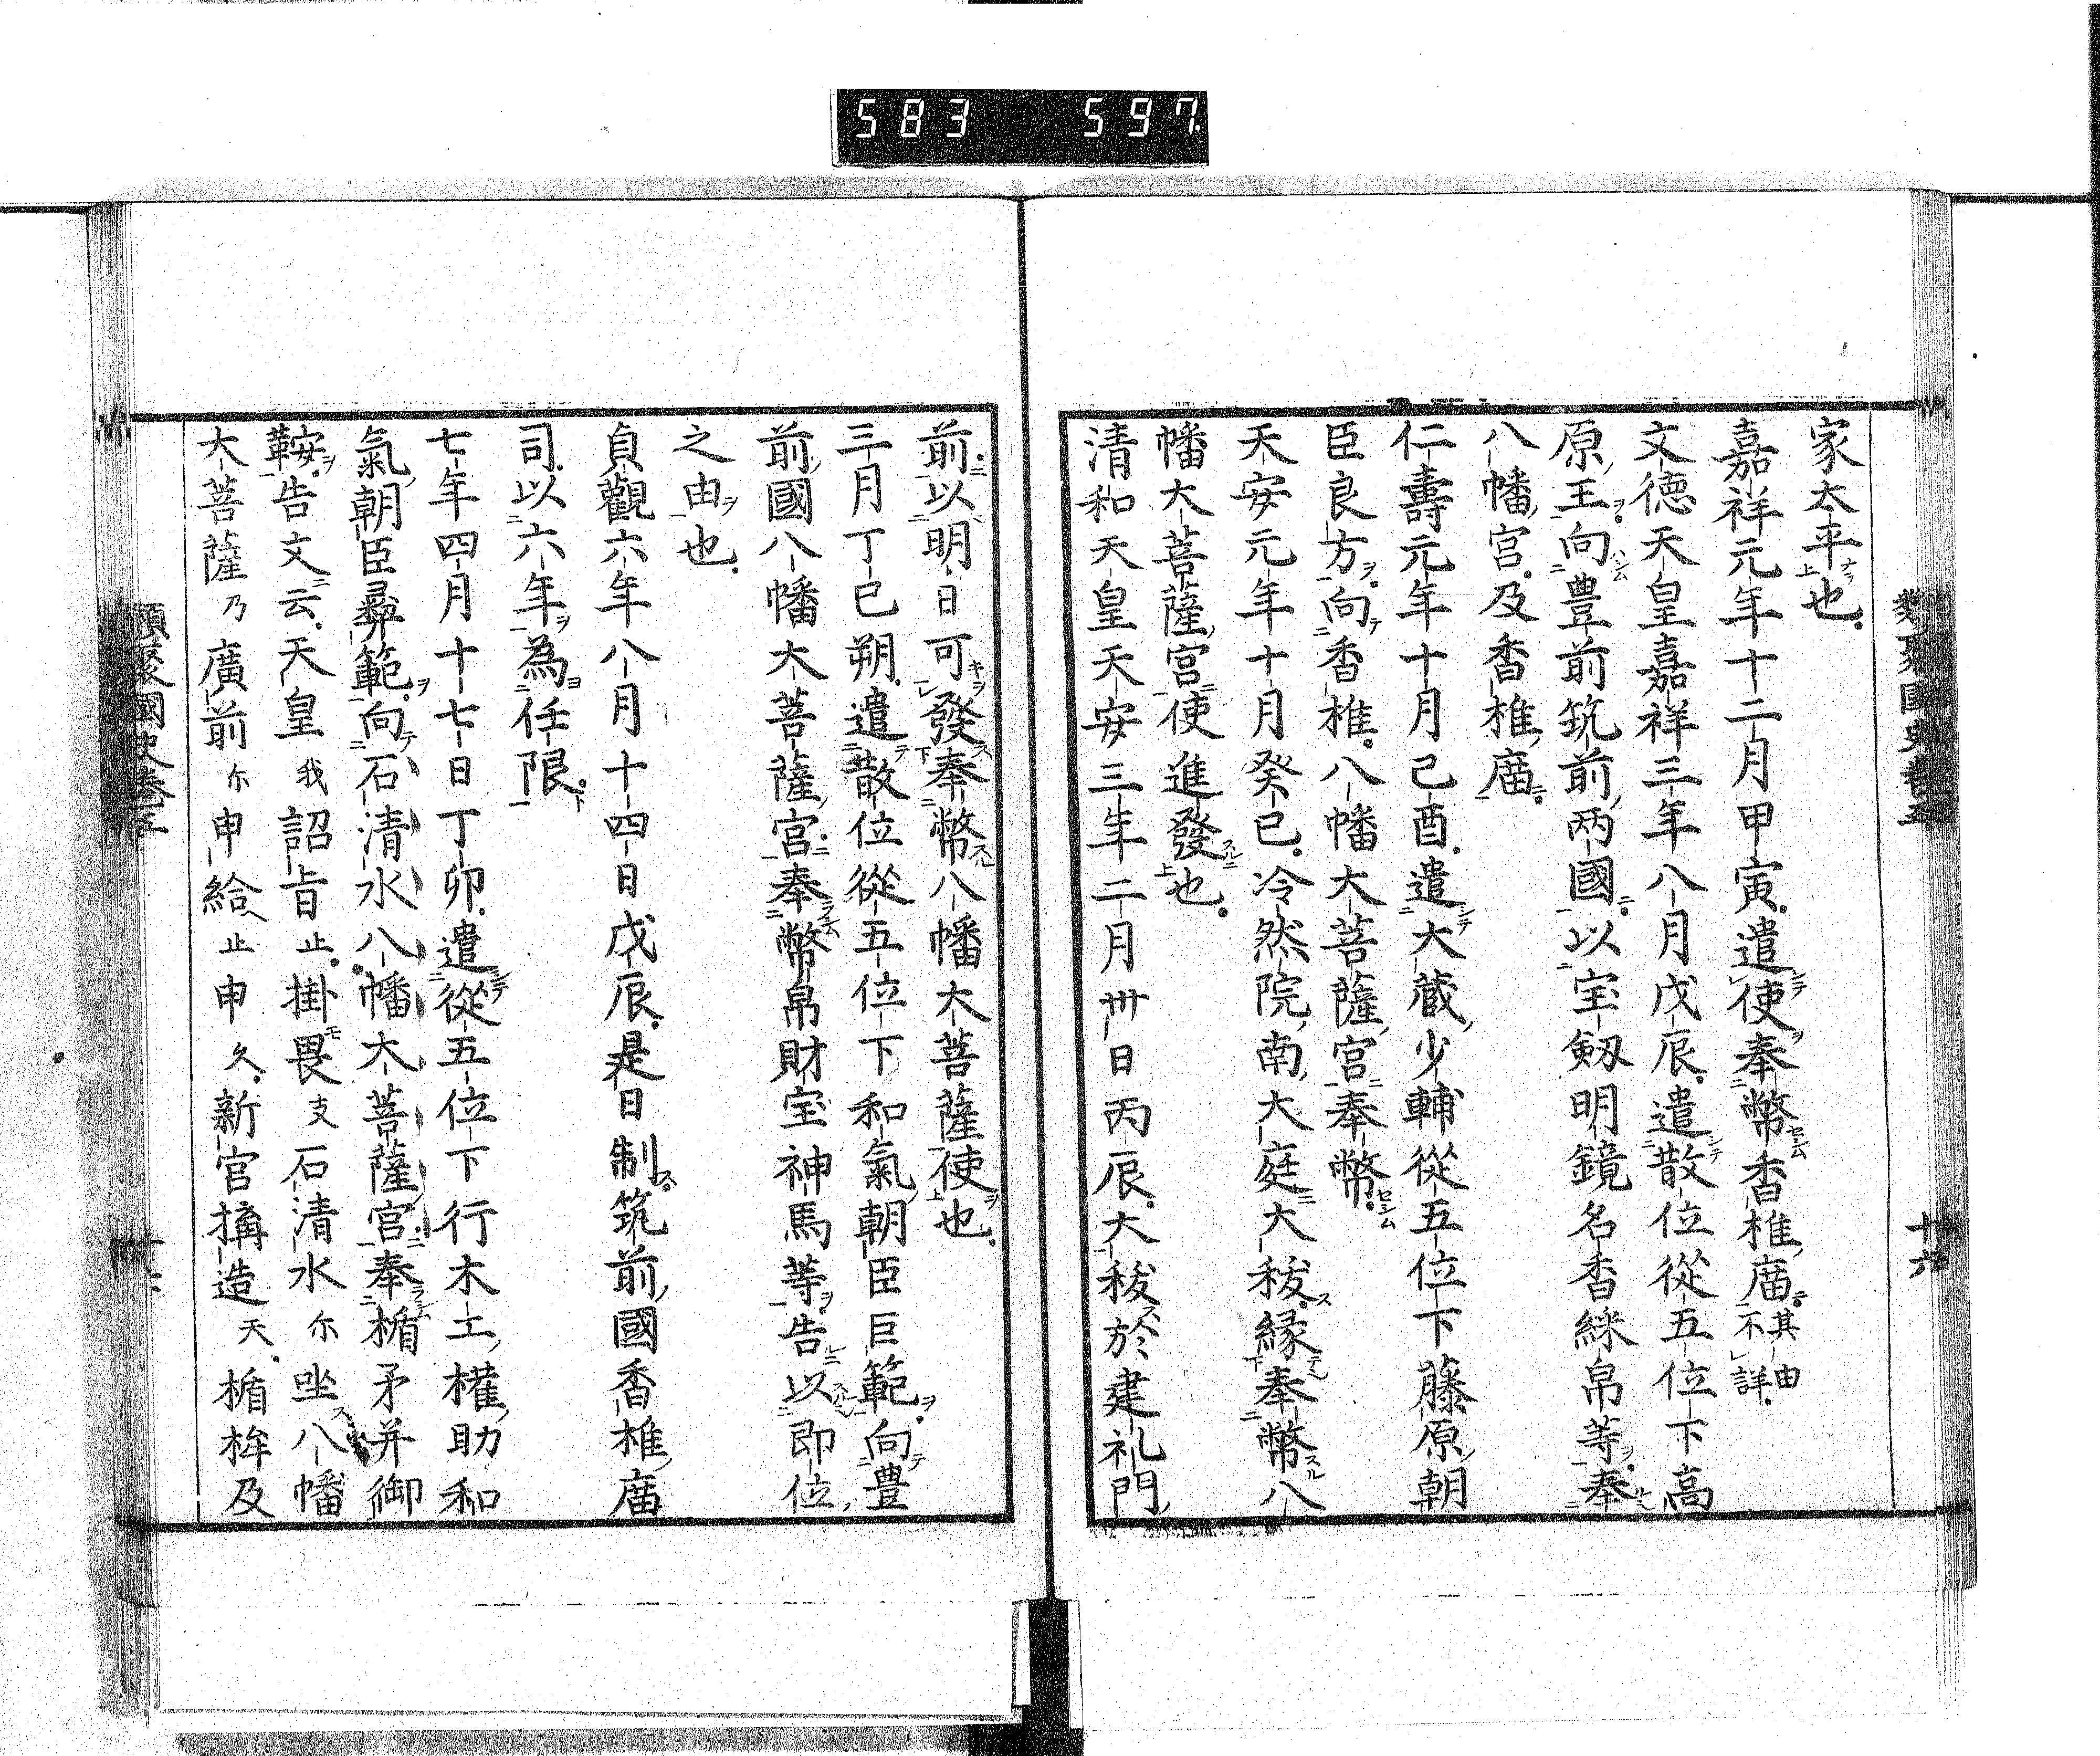 583 597
類聚國史卷五 十六
家太平也
嘉祥元年十二月甲寅遣使奉幣香椎庿其由不詳
文徳天皇嘉祥三年八月戊辰遣散位從五位下高
原王向豊前筑前兩國以宝剱明鏡名香綵帛等奉
八幡宮及香椎庿
仁壽元年十月己酉遣大蔵少輔從五位下藤原朝
臣良方向香椎八幡大菩薩宮奉幣
天安元年十月癸巳冷然院南大庭大秡縁奉幣八
幡大菩薩宮使進發也
清和天皇天安三年二月卅日丙辰大秡於建礼門
前以明日可發奉幣八幡大菩薩使也
三月丁巳朔遣散位從五位下和氣朝臣巨範向豊
前國八幡大菩薩宮奉幣帛財宝神馬等告以即位
之由也
貞觀六年八月十四日戊辰是日制筑前國香椎庿
司以六年為任限
七年四月十七日丁卯遣從五位下行木工權助和
氣朝臣彞範向石清水八幡大菩薩宮奉楯矛并御
鞍告文云天皇我詔旨止掛畏支石清水尓坐八幡
大菩薩乃廣前尓申給止申久新宮搆造天楯桙及
類聚國史卷五